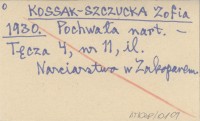 KOSSAK-SZCZUCKA Zofia
1930. Pochwała nart. -
Tęcza 4, nr 11, il.
Narciarstwo w Zakopanem